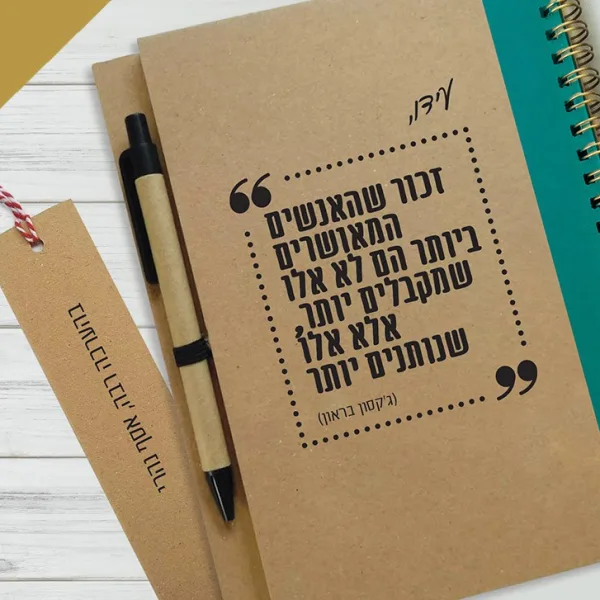 עידו,
זכור שהאנשים
המאושרים
ביותר הם לא אלו
שמקבלים יותר,
אלא אלו
שנותנים יותר
(ג'קסון בראון)
בהערכה רבה, אסף נהרי